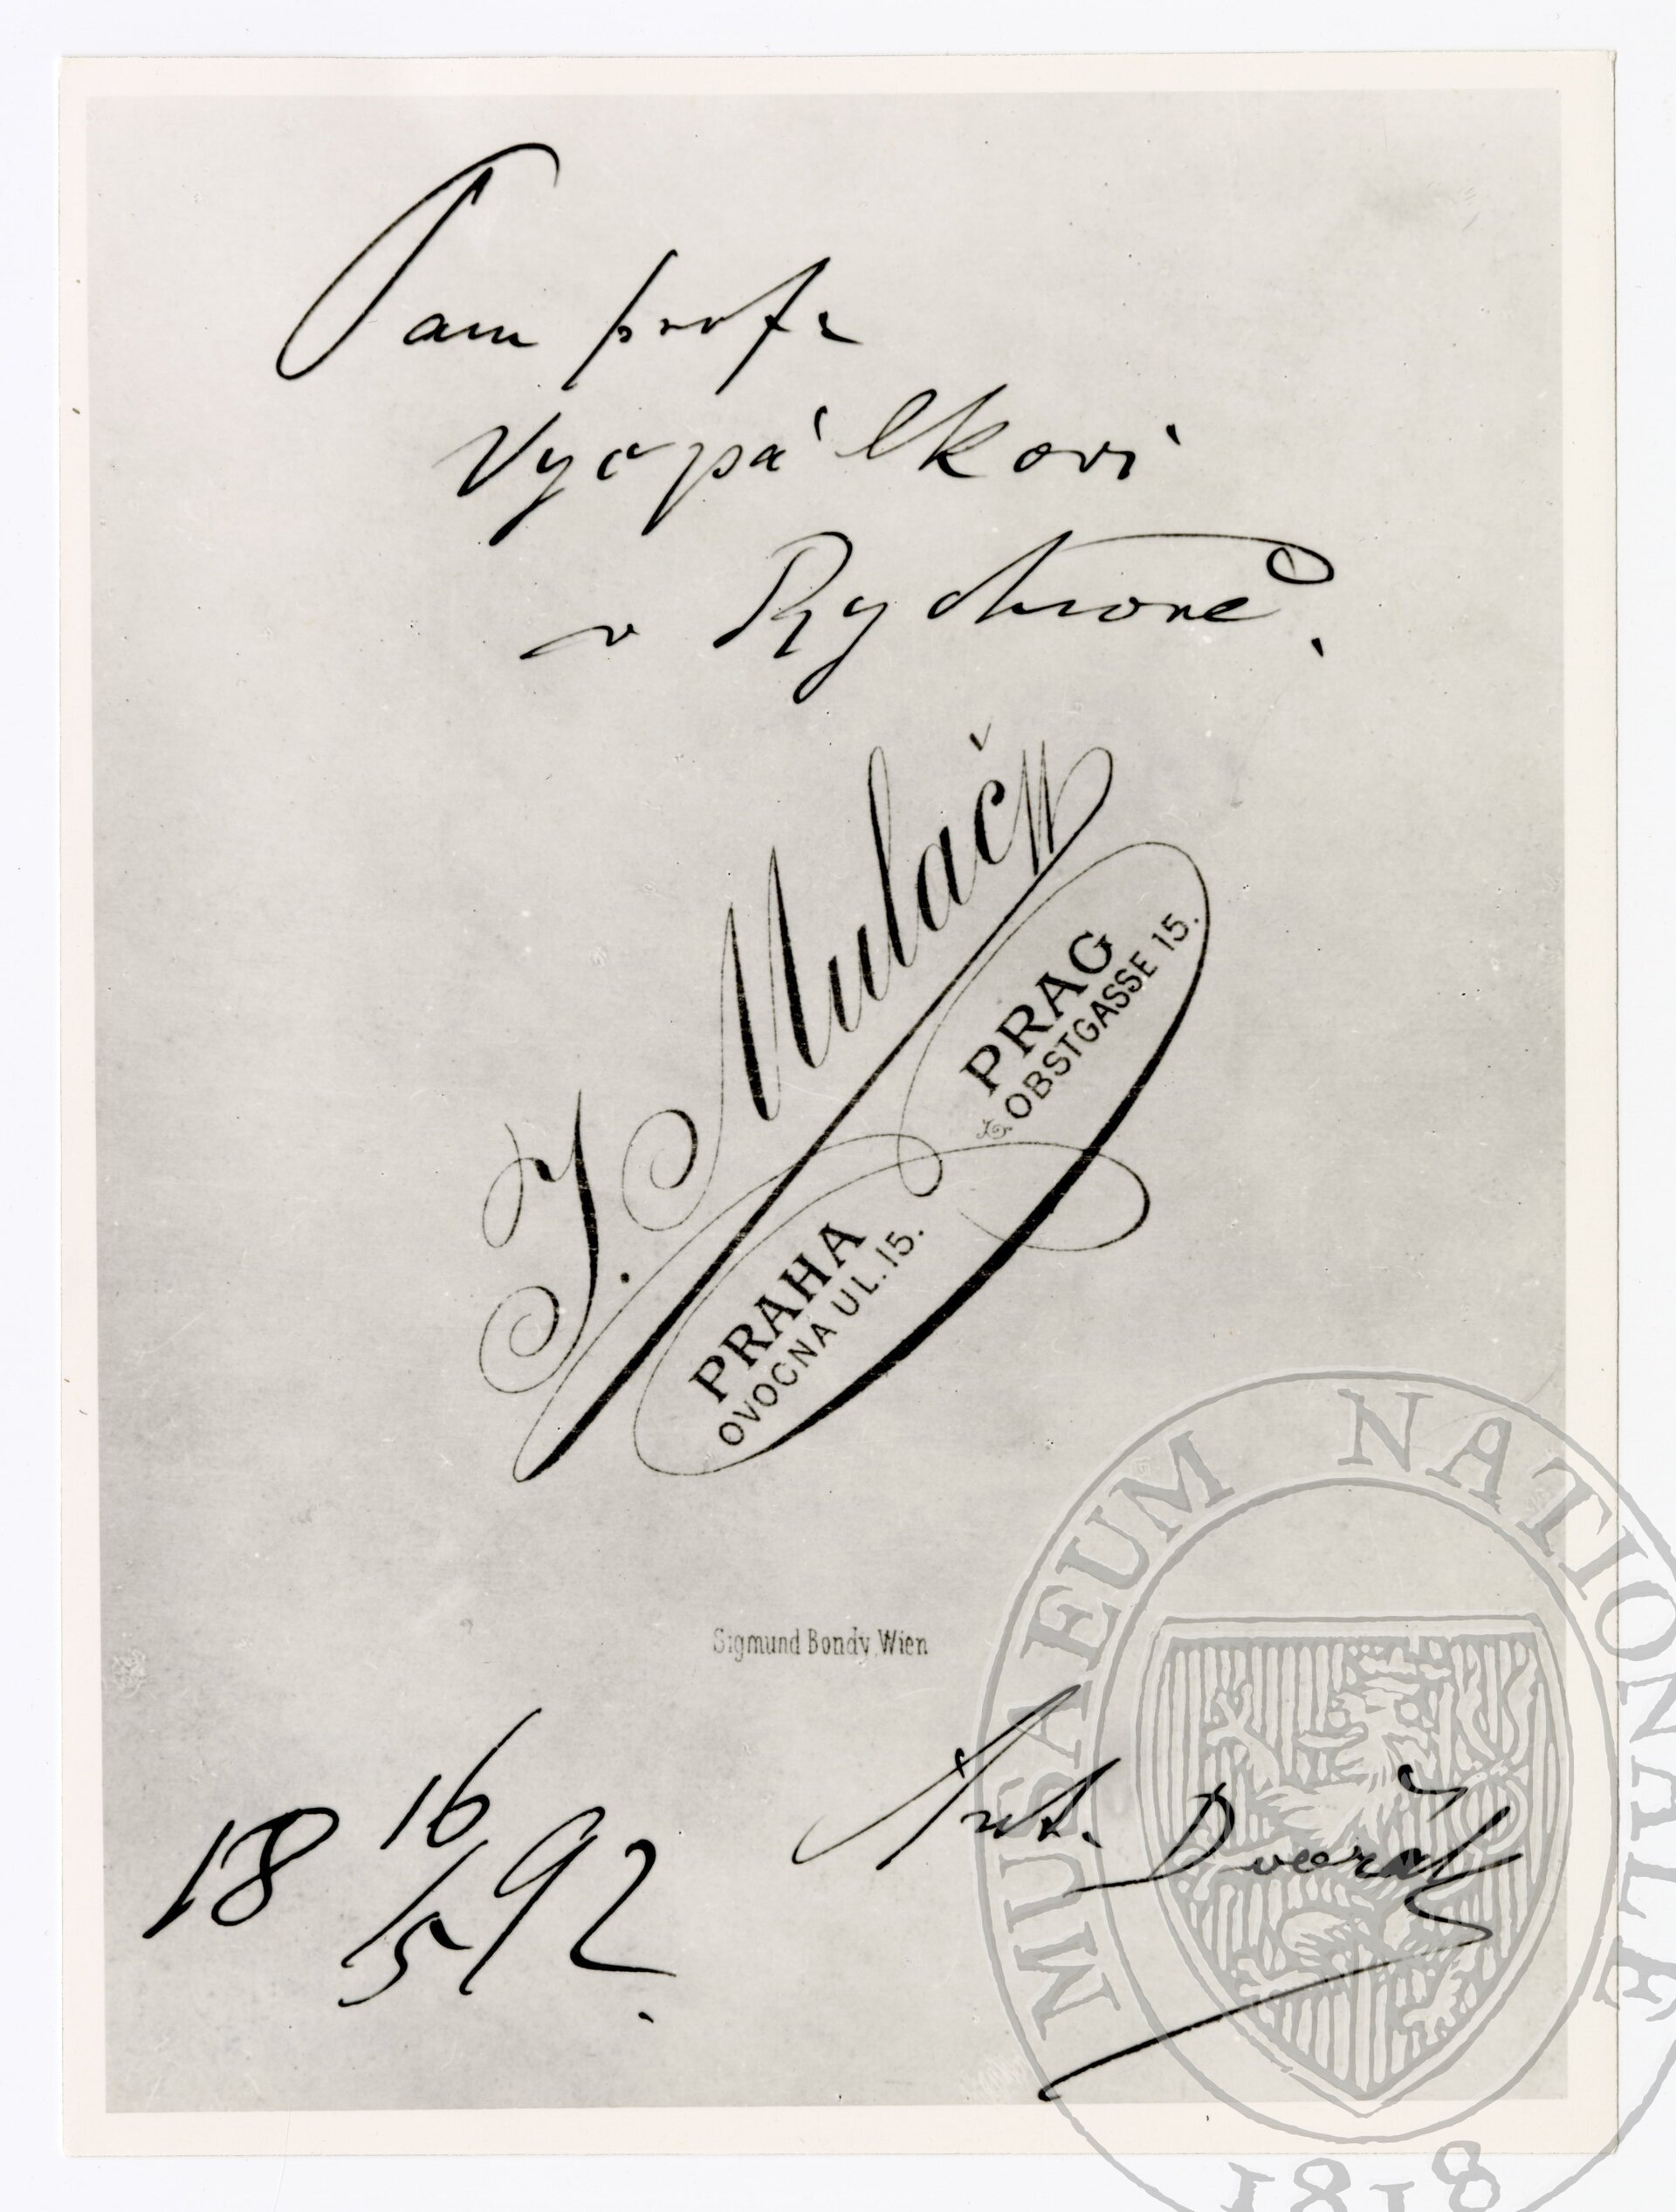 Panu prof.
Vycpálkovi
v Rychnově.
J. Mulač
PRAG
OBSTGASSE 15.
PRAHA
OVOCNÁ UL. 15.
Sigmund Bondy, Wien
18 16/5 92.
Ant. Dvořák
MUSAEUM NATIONALE
1818